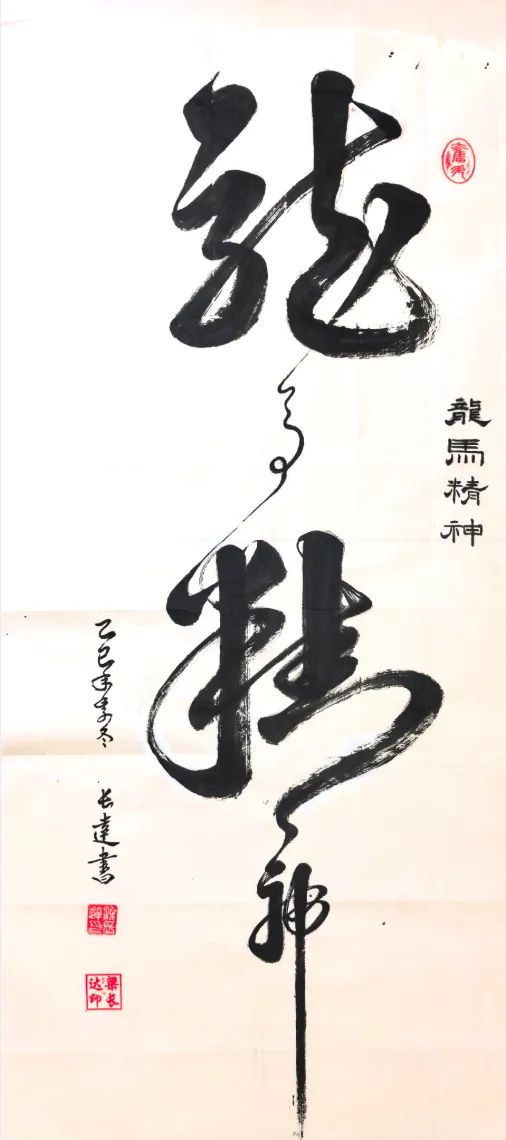 龍馬精神
龍馬精神
乙巳年季冬
长達書
梁长达印